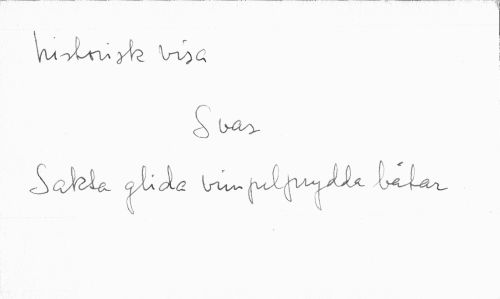 historisk visa
Svar
Sakta glida vimpelprydda båtar